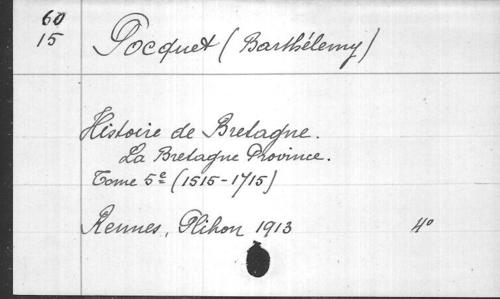 60
15
Pocquet (Barthélemy)
Histoire de Bretagne.
La Bretagne Province.
Tome 5e (1515-1715)
Rennes, Plihon 1913 4°